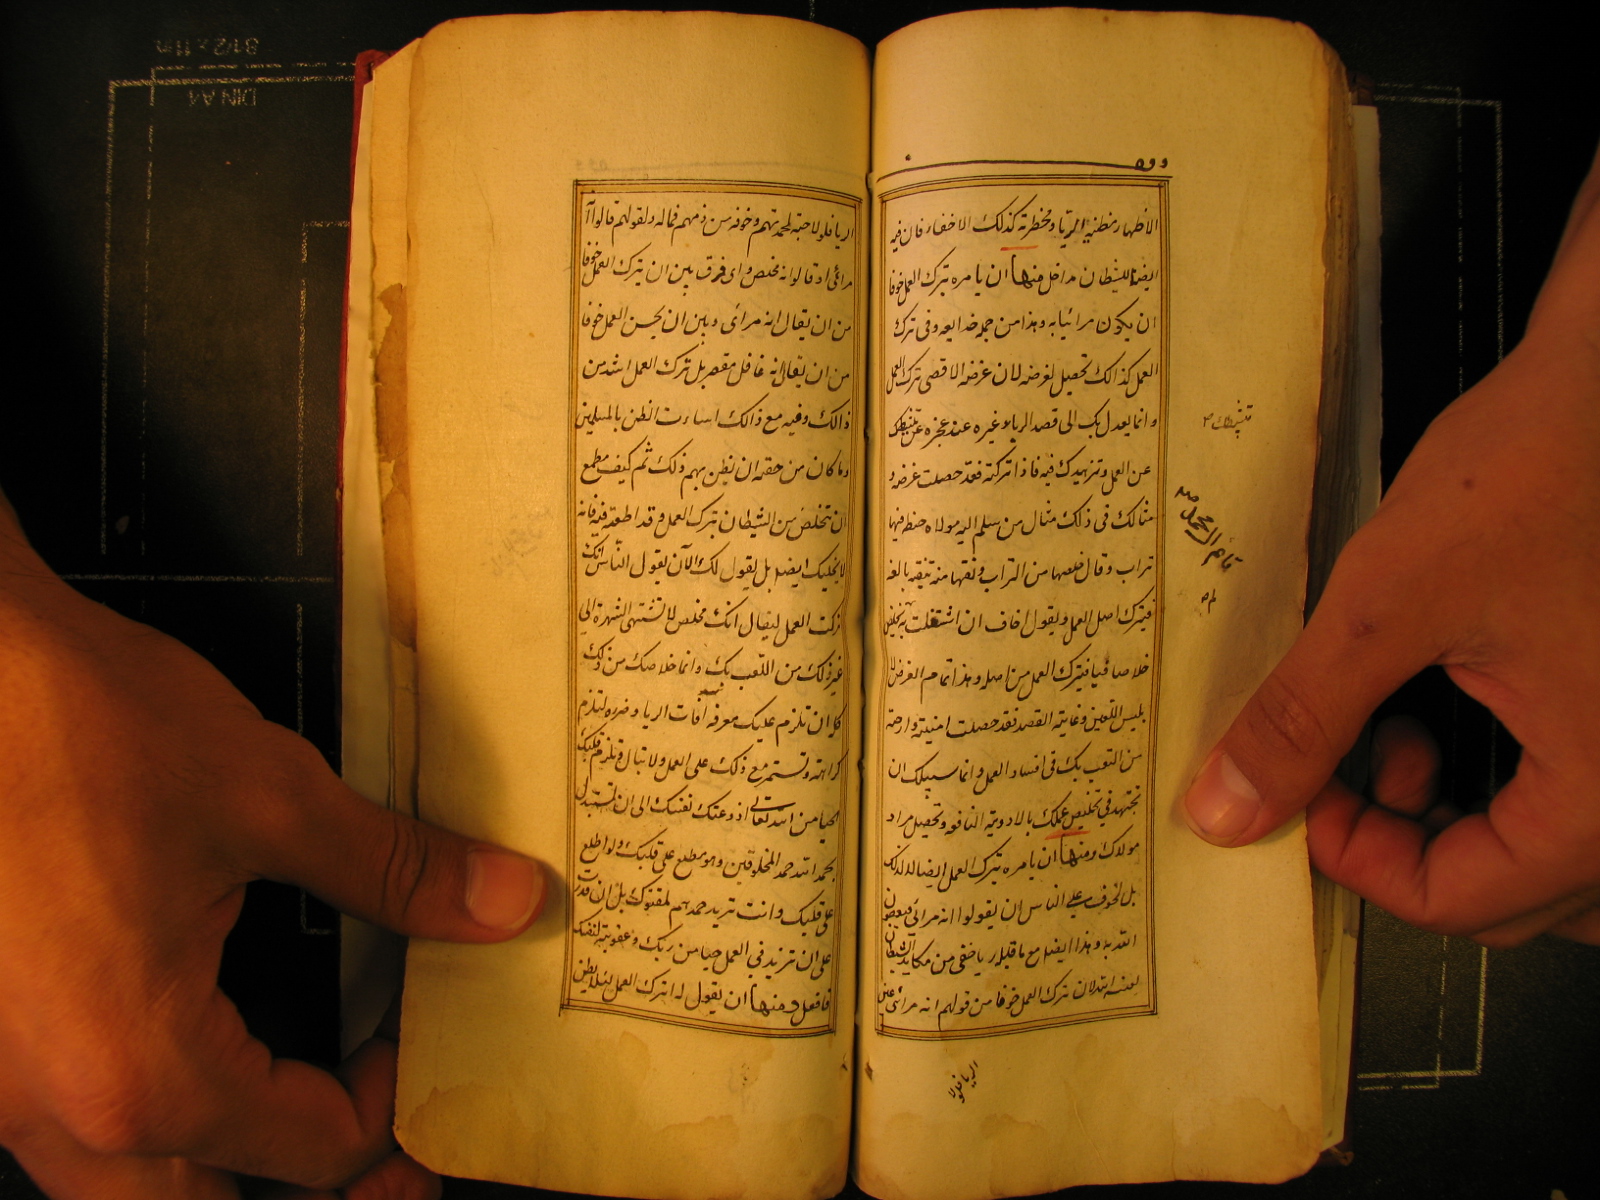 الاظهار مظنة الريا ومخطرته كذلك الاخفاء فان فيه
ايضا للشيطان مداخل منها ان يامره بترك العمل خوفا
ان يكون مرائيا به وهذا من جملة خدايعه وفى ترك
العمل كذالك تحصيل لغرضه لان غرضه الاقصى ترك العمل
وانما يعدل بك الى قصد الريا وغيره عند عجزه عن تثبيطك
عن العمل وتزهيدك فيه فاذا تركته فقد حصلت غرضه و
مثالك فى ذلك مثال من سلم اليه مولاه حنطة فيها
تراب وقال خلصها من التراب ونقها منه تنقية بالغة
فيترك اصل العمل ويقول اخاف ان اشتغلت به لم تخلص
خلاصا صافيا فيترك العمل من اصله وهذا تمام الغرض لا
بليس اللعين وغاية القصد فقد حصلت امنيته وارحته
من التعب بك فى افساد العمل وانما سبيلك ان
تجتهد في تخليص عملك بالادوية النافعة وتحصيل مراد
مولاك ومنها ان يامره بترك العمل ايضا لا لذلك
بل لخوف على الناس ان يقولوا انه مرائي فيعصون
الله به وهذا ايضا مع ما قبله ريا خفى من مكايد الشيطان
لعنه الله لان ترك العمل خوفا من قولهم انه مرائي عين
تثبيطك
قاسم آل محمد
الريا فلولا
الريا فلولا حبه لمحمدتهم وخوفه من ذمهم فماله ولقولهم قالوا
مرائى او قالوا انه مخلص واى فرق بين ان يترك العمل خوفا
من ان يقال انه مرائى وبين ان يحسن العمل خوفا
من ان يقال انه غافل مقصر بل ترك العمل اشد من
ذالك وفيه مع ذالك اساءت الظن بالمسلمين
وما كان من حقه ان يظن بهم ذلك ثم كيف مطمع
ان تتخلص من الشيطان بترك العمل وقد اطعته فيه فانه
لا يخليك ايضا بل يقول لك الآن يقول الناس انك
تركت العمل ليقال انك مخلص لا تشتهى الشهرة الى
غير ذلك من اللعب بك وانما خلاصك من ذلك
كله ان تلزم عليك معرفة آفات الريا وضرره لتلزم
كراهته وتستمر مع ذلك على العمل ولا تبال وتلزم قلبك
الحيا من الله تعالى اذ دعتك نفسك الى ان تستبدل
بحمد الله حمد المخلوقين وهو مطلع على قلبك ولو اطلع
على قلبك وانت تريد حمدهم لمقتوك بل ان قدرت
على ان تزيد في العمل حيا من ربك وعقوبة لنفسك
فافعل ومنها ان يقول له اترك العمل لئلا يظن